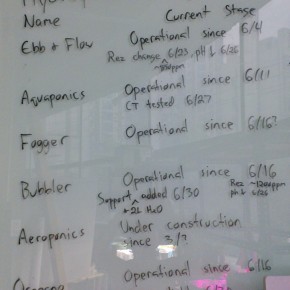 Name Current Stage
Ebb & Flow Operational since 6/4
Rez change 6/23, pH ↓ 6/26
Aquaponics Operational since 6/11
CT tested 6/27
Fogger Operational since 6/16?
Bubbler Operational since 6/16
Support added 6/30 Rez ~1200ppm
+2L H2O pH ↓ 6/26
Aeroponics Under construction
since 3/?
Operational since 6/16